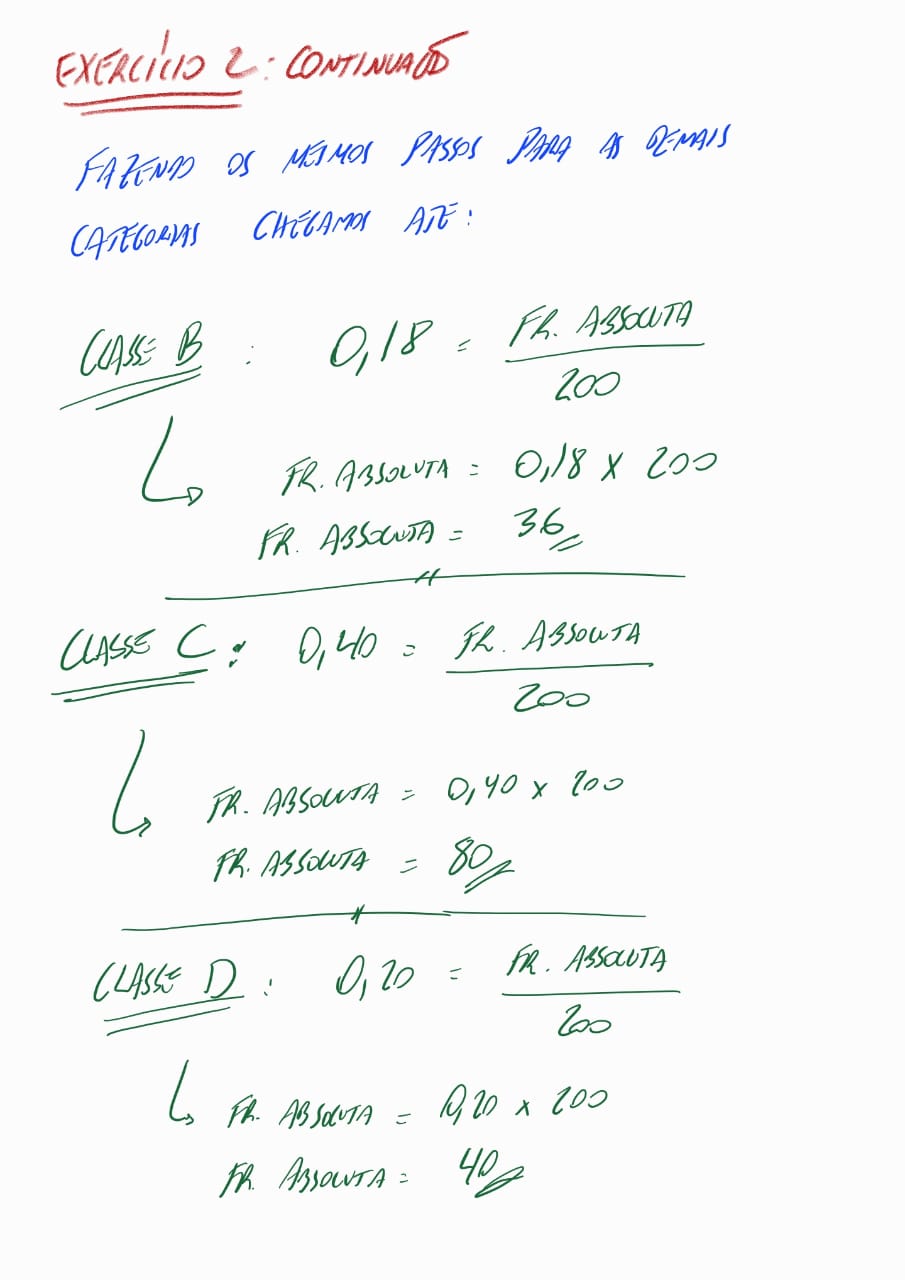 EXERCÍCIO 2: CONTINUAÇÃO
FAZENDO OS MESMOS PASSOS PARA AS DEMAIS
CATEGORIAS CHEGAMOS ATÉ:
CLASSE B : 0,18 = FR. ABSOLUTA
200
FR. ABSOLUTA = 0,18 X 200
FR. ABSOLUTA = 36
CLASSE C : 0,40 = FR. ABSOLUTA
200
FR. ABSOLUTA = 0,40 x 200
FR. ABSOLUTA = 80
CLASSE D : 0,20 = FR. ABSOLUTA
200
FR. ABSOLUTA = 0,20 x 200
FR. ABSOLUTA = 40